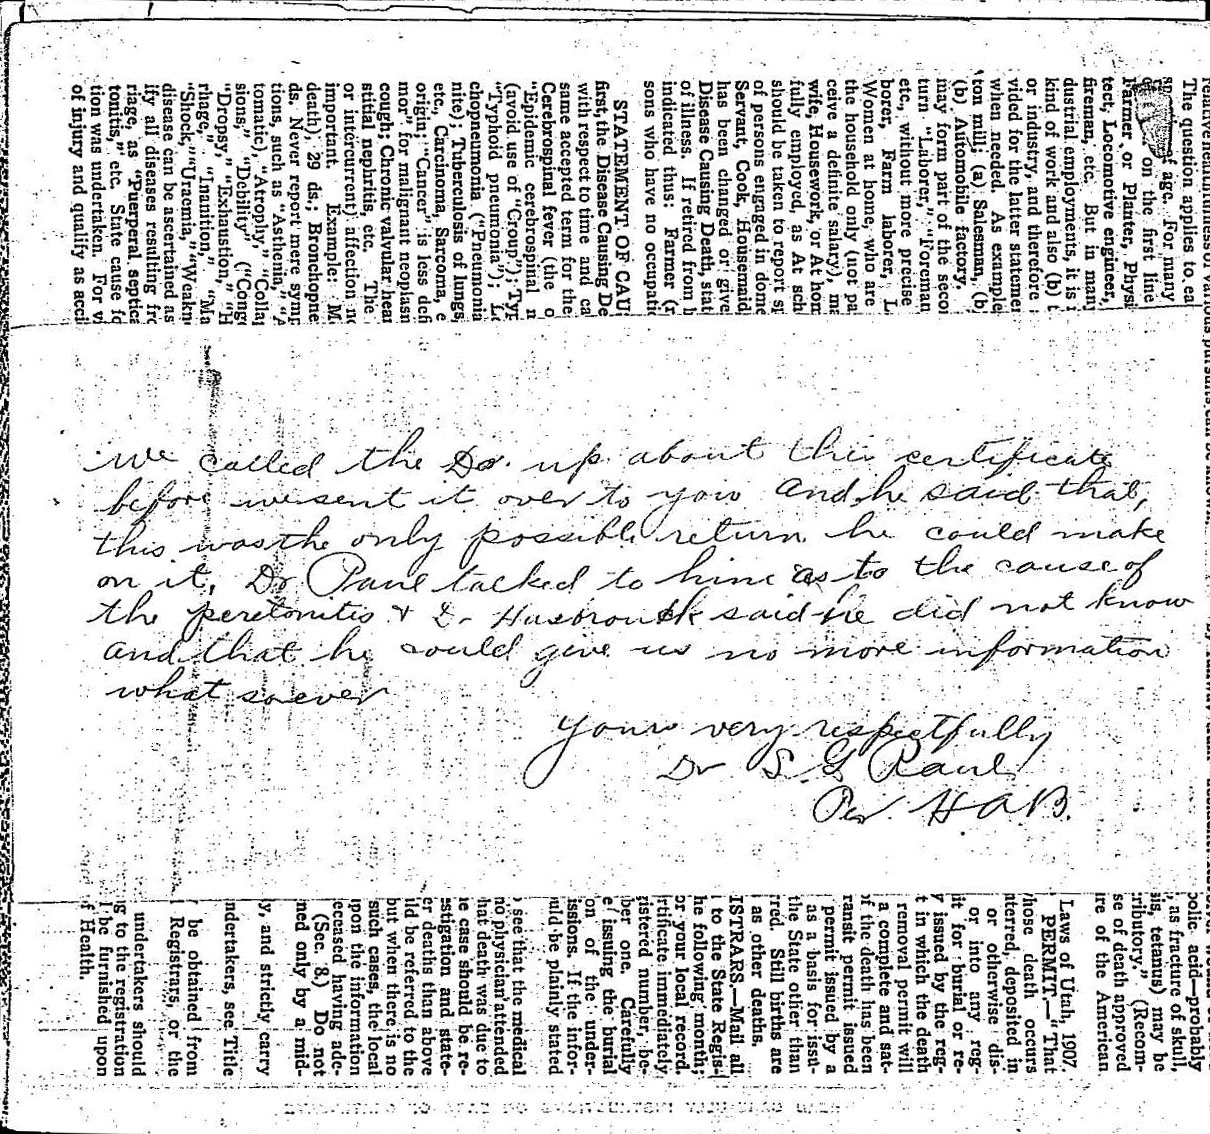 relative healthfulness of various pursuits can be known.
The question applies to ea
of age. For many
on the first line
Farmer or Planter, Physi
tect, Locomotive engineer,
fireman, etc. But in many
dustrial employments, it is
kind of work and also (b) t
or industry, and therefore
vided for the latter statemen
when needed. As example
ton mill; (a) Salesman, (b)
(b) Automobile factory.
may form part of the secon
turn "Laborer," "Foreman
etc., without more precise
borer, Farm laborer, L
Women at home, who are
the household only (not pa
ceive a definite salary), ma
wife, Housework, or At hom
fully employed, as At sch
should be taken to report sp
of persons engaged in dome
Servant, Cook, Housemaid
has been changed or give
Disease Causing Death, stat
of illness. If retired from b
indicated thus: Farmer (r
sons who have no occupati
STATEMENT OF CAU
first, the Disease Causing De
with respect to time and ca
same accepted term for the
Cerebrospinal fever (the o
"Epidemic cerebrospinal n
(avoid use of "Croup"); Typ
"Typhoid pneumonia"); L
chopneumonia ("Pneumonia
nite); Tuberculosis of lungs,
etc., Carcinoma, Sarcoma, e
origin; "Cancer" is less defi
mor" for malignant neoplasm
cough; Chronic valvular hear
stitial nephritis, etc. The
or intercurrent) affection ne
important. Example: M
death), 29 ds.; Bronchopne
ds. Never report mere symp
tions, such as "Asthenia," "A
tomatic), "Atrophy," "Collap
sions," "Debility" ("Cong
"Dropsy," "Exhaustion," "H
rhage," "Inanition," "Ma
"Shock," "Uraemia," "Weakn
disease can be ascertained as
ify all diseases resulting fro
riage, as "Puerperal septica
tonitis," etc. State cause fo
tion was undertaken. For vi
of injury and qualify as acci
We called the Dr. up about this certificate
before we sent it over to you and he said that,
this was the only possible return he could make
on it. Dr Paul talked to him as to the cause of
the peretonitis & Dr Hasbrouck said he did not know
and that he could give us no more information
what soever
Yours very respectfully
Dr S. G Paul
Per. H A B.
bolic acid—probably
, as fracture of skull,
sis, tetanus) may be
ributory." (Recom-
se of death approved
ire of the American
Laws of Utah, 1907.
PERMIT.—"That
hose death occurs
terred, deposited in
or otherwise dis-
or into any reg-
it for burial or re-
y issued by the reg-
t in which the death
removal permit will
a complete and sat-
f the death has been
ransit permit issued
permit issued by a
as a basis for issu-
the State other than
rred. Still births are
as other deaths.
ISTRARS.—Mail all
to the State Regis-
he following month;
or your local record.
rtificate immediately
istered number, be-
ber one. Carefully
e issuing the burial
on of the under-
issions. If the infor-
uld be plainly stated
see that the medical
no physician attended
hat death was due to
e case should be re-
estigation and state-
er deaths than above
ild be referred to the
but when there is no
such cases, the local
upon the information
eceased having ade-
(Sec. 8.) Do not
ned only by a mid-
y, and strictly carry
ndertakers, see Title
be obtained from
Registrars, or the
undertakers should
ng to the registration
l be furnished upon
f Health.